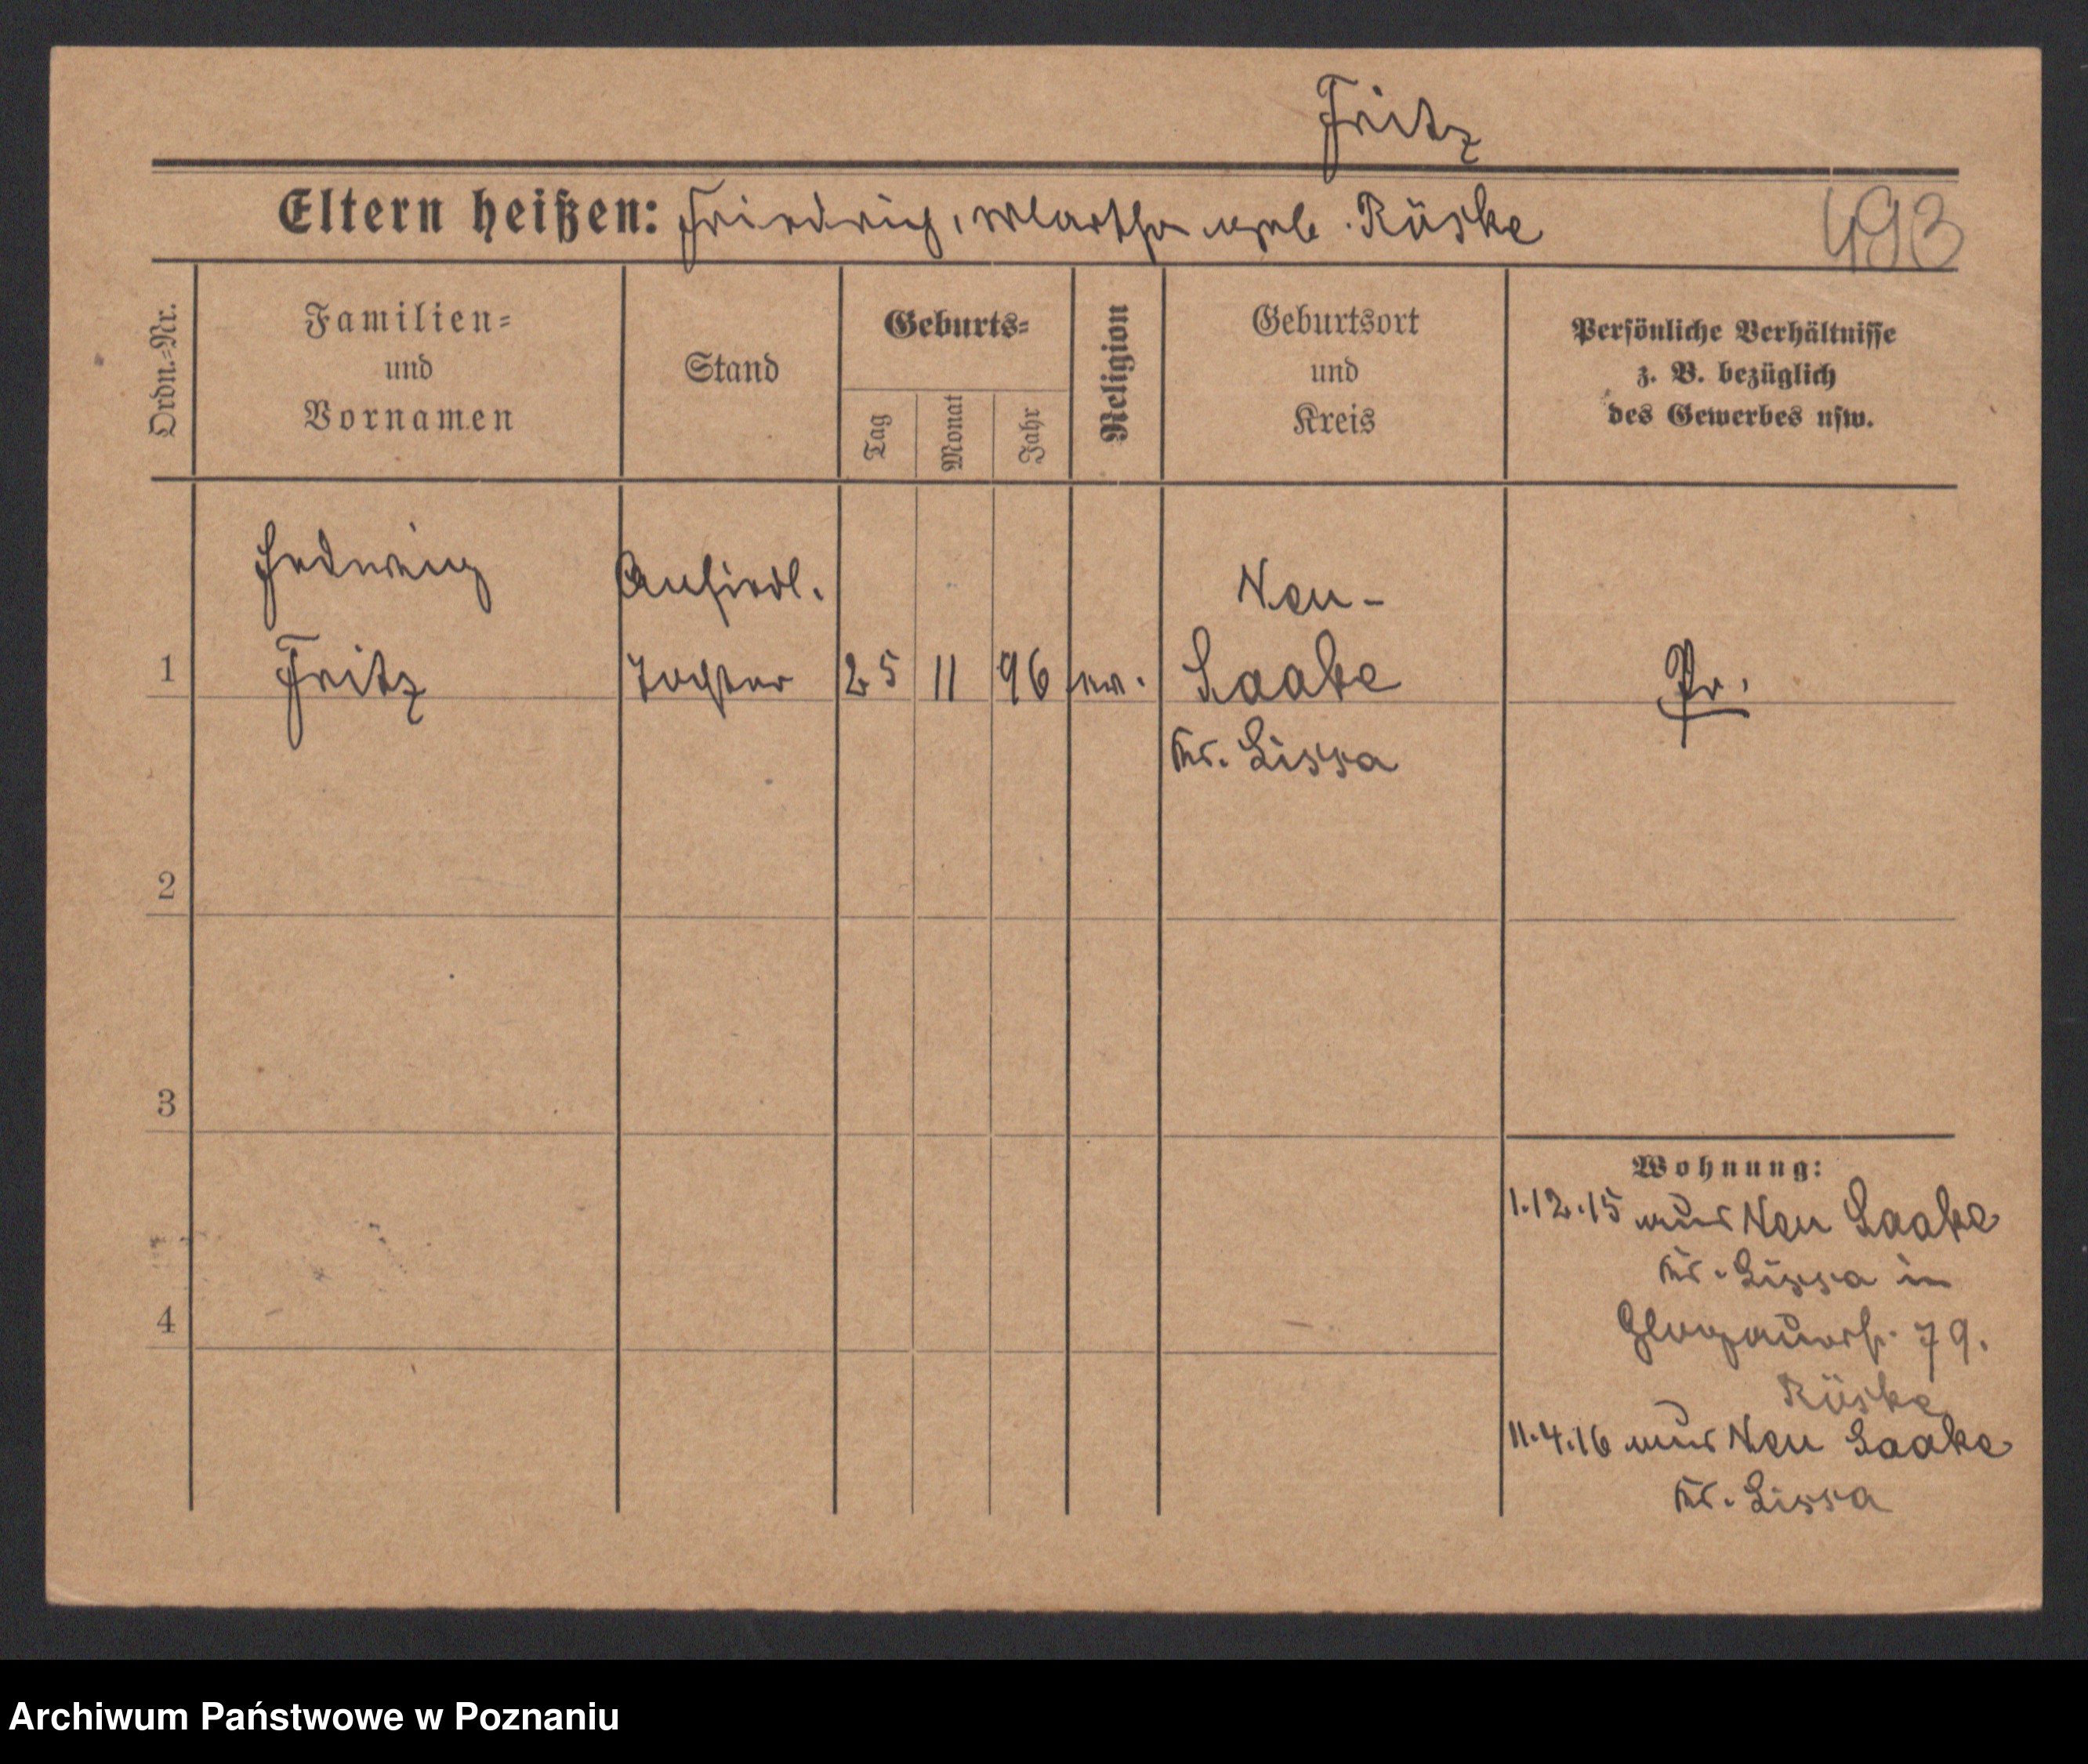 Fritz
Eltern heißen: Friedrich, Martha geb. Rüske
493
Ordn.=Nr.
Familien=
und
Vornamen
Stand
Geburts=
Tag
Monat
Jahr
Religion
Geburtsort
und
Kreis
Persönliche Verhältnisse
z. B. bezüglich
des Gewerbes usw.
Hedwig
Fritz
Ansiedl.
Tochter
1
25
11
96
ev.
Neu-
Laabe
Kr. Lissa
Pr.
2
3
4
Wohnung:
1.12.15 aus Neu Laabe
Kr. Lissa in
Glogauerstr. 79.
Rüske
11.4.16 aus Neu Laabe
Kr. Lissa
Archiwum Państwowe w Poznaniu